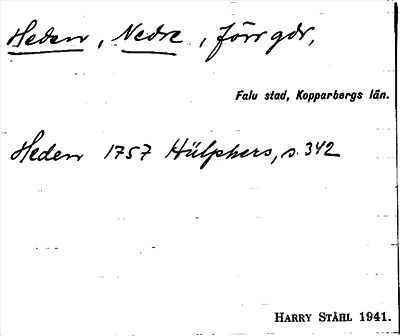 Heden, Nedre, förr gdr,
Falu stad, Kopparbergs län.
Heden 1757 Hülphers, s. 342
HARRY STÅHL 1941.